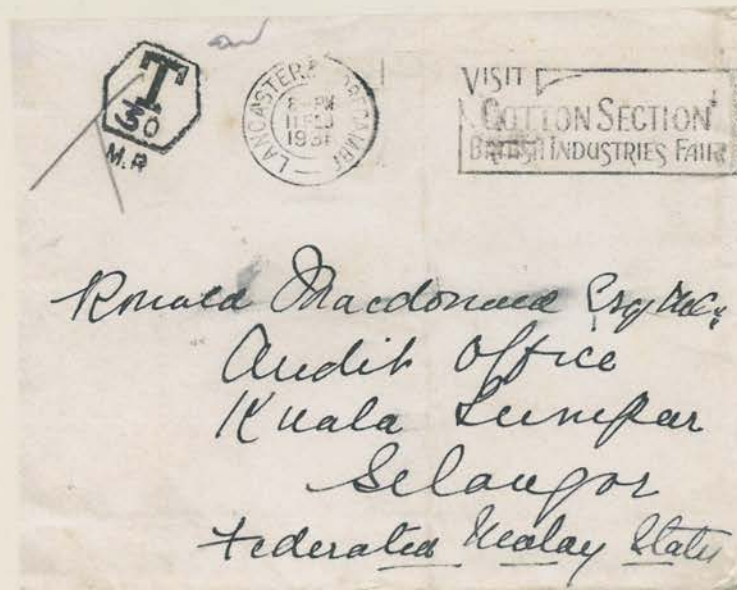 T
30
M.R
LANCASTER &
8 – PM
11 FEB
1931
VISIT
COTTON SECTION
BRITISH INDUSTRIES FAIR
Ronald Macdonald Esq
Audit Office
Kuala Lumpar
Selangor
Federated Malay States